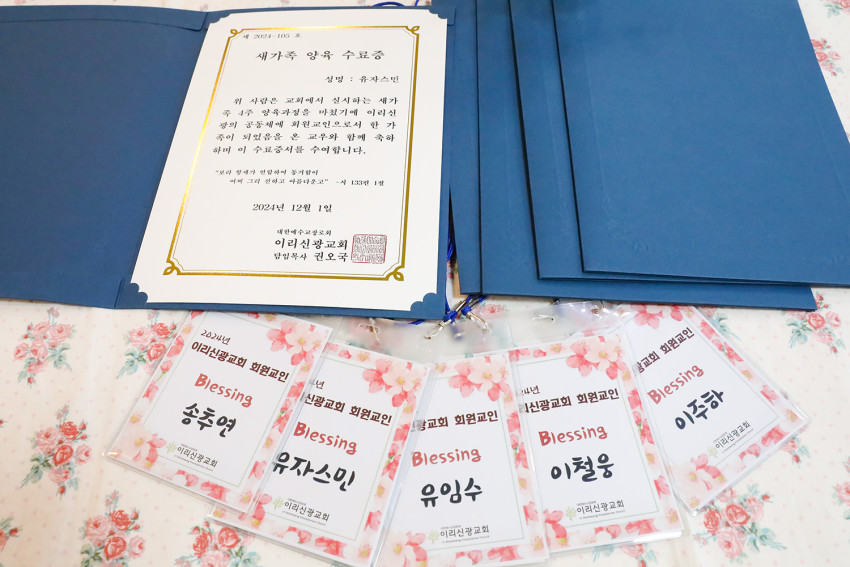 제 2024-105 호
새가족 양육 수료증
성명 : 유자스민
위 사람은 교회에서 실시하는 새가
족 4주 양육과정을 마쳤기에 이리신
광의 공동체에 회원교인으로서 한 가
족이 되었음을 온 교우와 함께 축하
하며 이 수료증서를 수여합니다.
"보라 형제가 연합하여 동거함이
어찌 그리 선하고 아름다운고" -시 133편 1절
2024년 12월 1일
대한예수교장로회
이리신광교회
담임목사 권오국
2024년
이리신광교회 회원교인
Blessing
송추연
이리신광교회
24년
신광교회 회원교인
Blessing
유자스민
이리신광교회
광교회 회원교인
Blessing
유임수
이리신광교회
24년
신광교회 회원교인
Blessing
이철웅
이리신광교회
회원교인
Blessing
이주하
이리신광교회